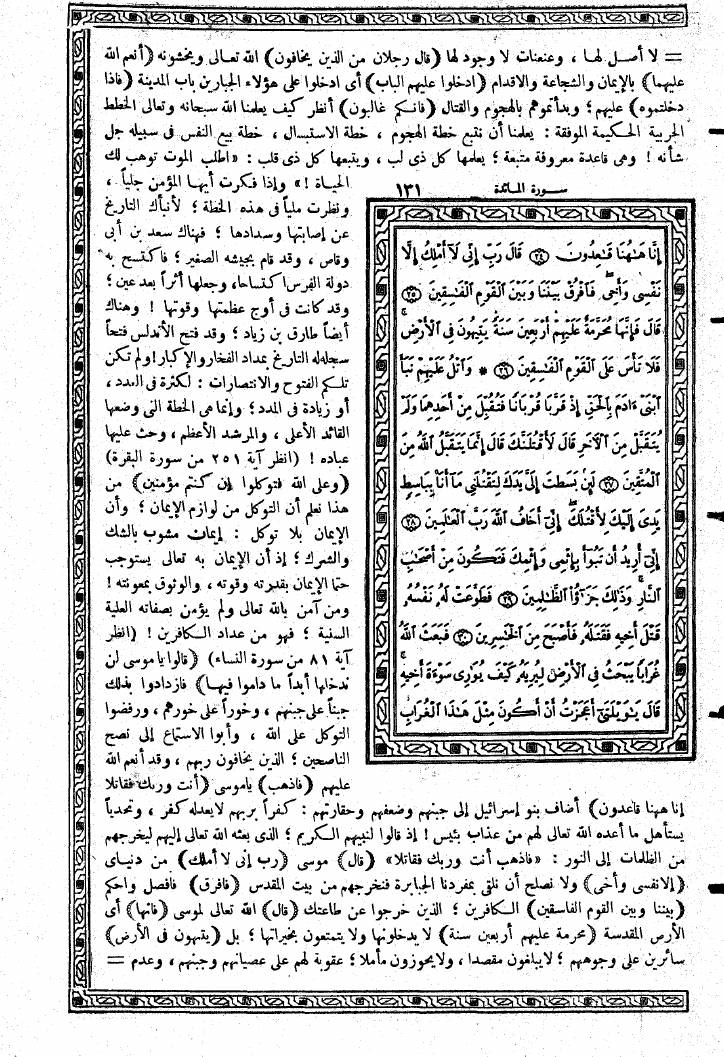 = لا أصل لها، وعنعنات لا وجود لها (قال رجلان من الذين يخافون) الله تعالى ويخشونه (أنعم الله
عليهما) بالإيمان والشجاعة والاقدام (ادخلوا عليهم الباب) أى ادخلوا على هؤلاء الجبارين باب المدينة (فاذا
دخلتموه) عليهم؛ وبدأتموهم بالهجوم والقتال (فانكم غالبون) أنظر كيف يعلمنا الله سبحانه وتعالى الخطط
الحربية الحكيمة الموفقة: يعلمنا أن نتبع خطة الهجوم، خطة الاستبسال، خطة بيع النفس فى سبيله جل
شأنه! وهى قاعدة معروفة متبعة؛ يعلمها كل ذى لب، ويتبعها كل ذى قلب: «اطلب الموت توهب لك
الحياة!» وإذا فكرت أيها المؤمن جلياً،
ونظرت ملياً فى هذه الخطة؛ لأنبأك التاريخ
عن إصابتها وسدادها؛ فهناك سعد بن أبى
وقاص، وقد قام بجيشه الصغير؛ فاكتسح به
دولة الفرس اكتساحا، وجعلها أثراً بعد عين؛
وقد كانت فى أوج عظمتها وقوتها! وهناك
أيضاً طارق بن زياد؛ وقد فتح الأندلس فتحاً
سجله له التاريخ بمداد الفخار والإكبار! ولم تكن
تلكم الفتوح والانتصارات: لكثرة فى العدد،
أو زيادة فى المدد؛ وإنما هى الخطة التى وضعها
القائد الأعلى، والمرشد الأعظم، وحث عليها
عباده! (انظر آية ٢٥١ من سورة البقرة)
(وعلى الله فتوكلوا إن كنتم مؤمنين) من
هذا نعلم أن التوكل من لوازم الإيمان؛ وأن
الإيمان بلا توكل: إيمان مشوب بالشك
والشرك؛ إذ أن الإيمان به تعالى يستوجب
حتما الإيمان بقدرته وقوته، والوثوق بمعونته!
ومن آمن بالله تعالى ولم يؤمن بصفاته العلية
السنية؛ فهو من عداد الكافرين! (انظر
آية ٨١ من سورة النساء) (قالوا يا موسى لن
ندخلها أبداً ما داموا فيها) فازدادوا بذلك
جبناً على جبنهم، وخوراً على خورهم، ورفضوا
التوكل على الله، وأبوا الاستماع إلى نصح
الناصحين؛ الذين يخافون ربهم، وقد أنعم الله
عليهم (فاذهب) ياموسى (أنت وربك فقاتلا
سورة المائدة ١٣١
إِنَّا هَٰهُنَا قَٰعِدُونَ ﴿٢٤﴾ قَالَ رَبِّ إِنِّى لَآ أَمْلِكُ إِلَّا
نَفْسِى وَأَخِى فَٱفْرُقْ بَيْنَنَا وَبَيْنَ ٱلْقَوْمِ ٱلْفَٰسِقِينَ ﴿٢٥﴾
قَالَ فَإِنَّهَا مُحَرَّمَةٌ عَلَيْهِمْ أَرْبَعِينَ سَنَةً يَتِيهُونَ فِى ٱلْأَرْضِ
فَلَا تَأْسَ عَلَى ٱلْقَوْمِ ٱلْفَٰسِقِينَ ﴿٢٦﴾ * وَٱتْلُ عَلَيْهِمْ نَبَأَ
ٱبْنَىْ ءَادَمَ بِٱلْحَقِّ إِذْ قَرَّبَا قُرْبَانًا فَتُقُبِّلَ مِنْ أَحَدِهِمَا وَلَمْ
يُتَقَبَّلْ مِنَ ٱلْآخَرِ قَالَ لَأَقْتُلَنَّكَ قَالَ إِنَّمَا يَتَقَبَّلُ ٱللَّهُ مِنَ
ٱلْمُتَّقِينَ ﴿٢٧﴾ لَئِنۢ بَسَطتَ إِلَىَّ يَدَكَ لِتَقْتُلَنِى مَآ أَنَا۠ بِبَاسِطٍ
يَدِىَ إِلَيْكَ لِأَقْتُلَكَ إِنِّىٓ أَخَافُ ٱللَّهَ رَبَّ ٱلْعَٰلَمِينَ ﴿٢٨﴾
إِنِّىٓ أُرِيدُ أَن تَبُوٓأَ بِإِثْمِى وَإِثْمِكَ فَتَكُونَ مِنْ أَصْحَٰبِ
ٱلنَّارِ وَذَٰلِكَ جَزَٰٓؤُا۟ ٱلظَّٰلِمِينَ ﴿٢٩﴾ فَطَوَّعَتْ لَهُۥ نَفْسُهُۥ
قَتْلَ أَخِيهِ فَقَتَلَهُۥ فَأَصْبَحَ مِنَ ٱلْخَٰسِرِينَ ﴿٣٠﴾ فَبَعَثَ ٱللَّهُ
غُرَابًا يَبْحَثُ فِى ٱلْأَرْضِ لِيُرِيَهُۥ كَيْفَ يُوَٰرِى سَوْءَةَ أَخِيهِ
قَالَ يَٰوَيْلَتَىٰٓ أَعَجَزْتُ أَنْ أَكُونَ مِثْلَ هَٰذَا ٱلْغُرَابِ
إنا ههنا قاعدون) أضاف بنو إسرائيل إلى جبنهم وضعفهم وحقارتهم: كفراً بربهم لا يعدله كفر، وتحدياً
يستأهل ما أعده الله تعالى لهم من عذاب بئيس! إذ قالوا لنبيهم الكريم؛ الذى بعثه الله تعالى إليهم ليخرجهم
من الظلمات إلى النور: «فاذهب أنت وربك فقاتلا» (قال) موسى (رب إنى لا أملك) من دنياى
(إلا نفسى وأخى) ولا نصلح أن نلقى بمفردنا الجبابرة فنخرجهم من بيت المقدس (فافرق) فافصل واحكم
(بيننا وبين القوم الفاسقين) الكافرين؛ الذين خرجوا عن طاعتك (قال) الله تعالى لموسى (فانها) أى
الأرض المقدسة (محرمة عليهم أربعين سنة) لا يدخلونها ولا يتمتعون بخيراتها؛ بل (يتيهون فى الأرض)
سائرين على وجوههم؛ لا يبلغون مقصدا، ولا يحوزون مأملا؛ عقوبة لهم على عصيانهم وجبنهم، وعدم =